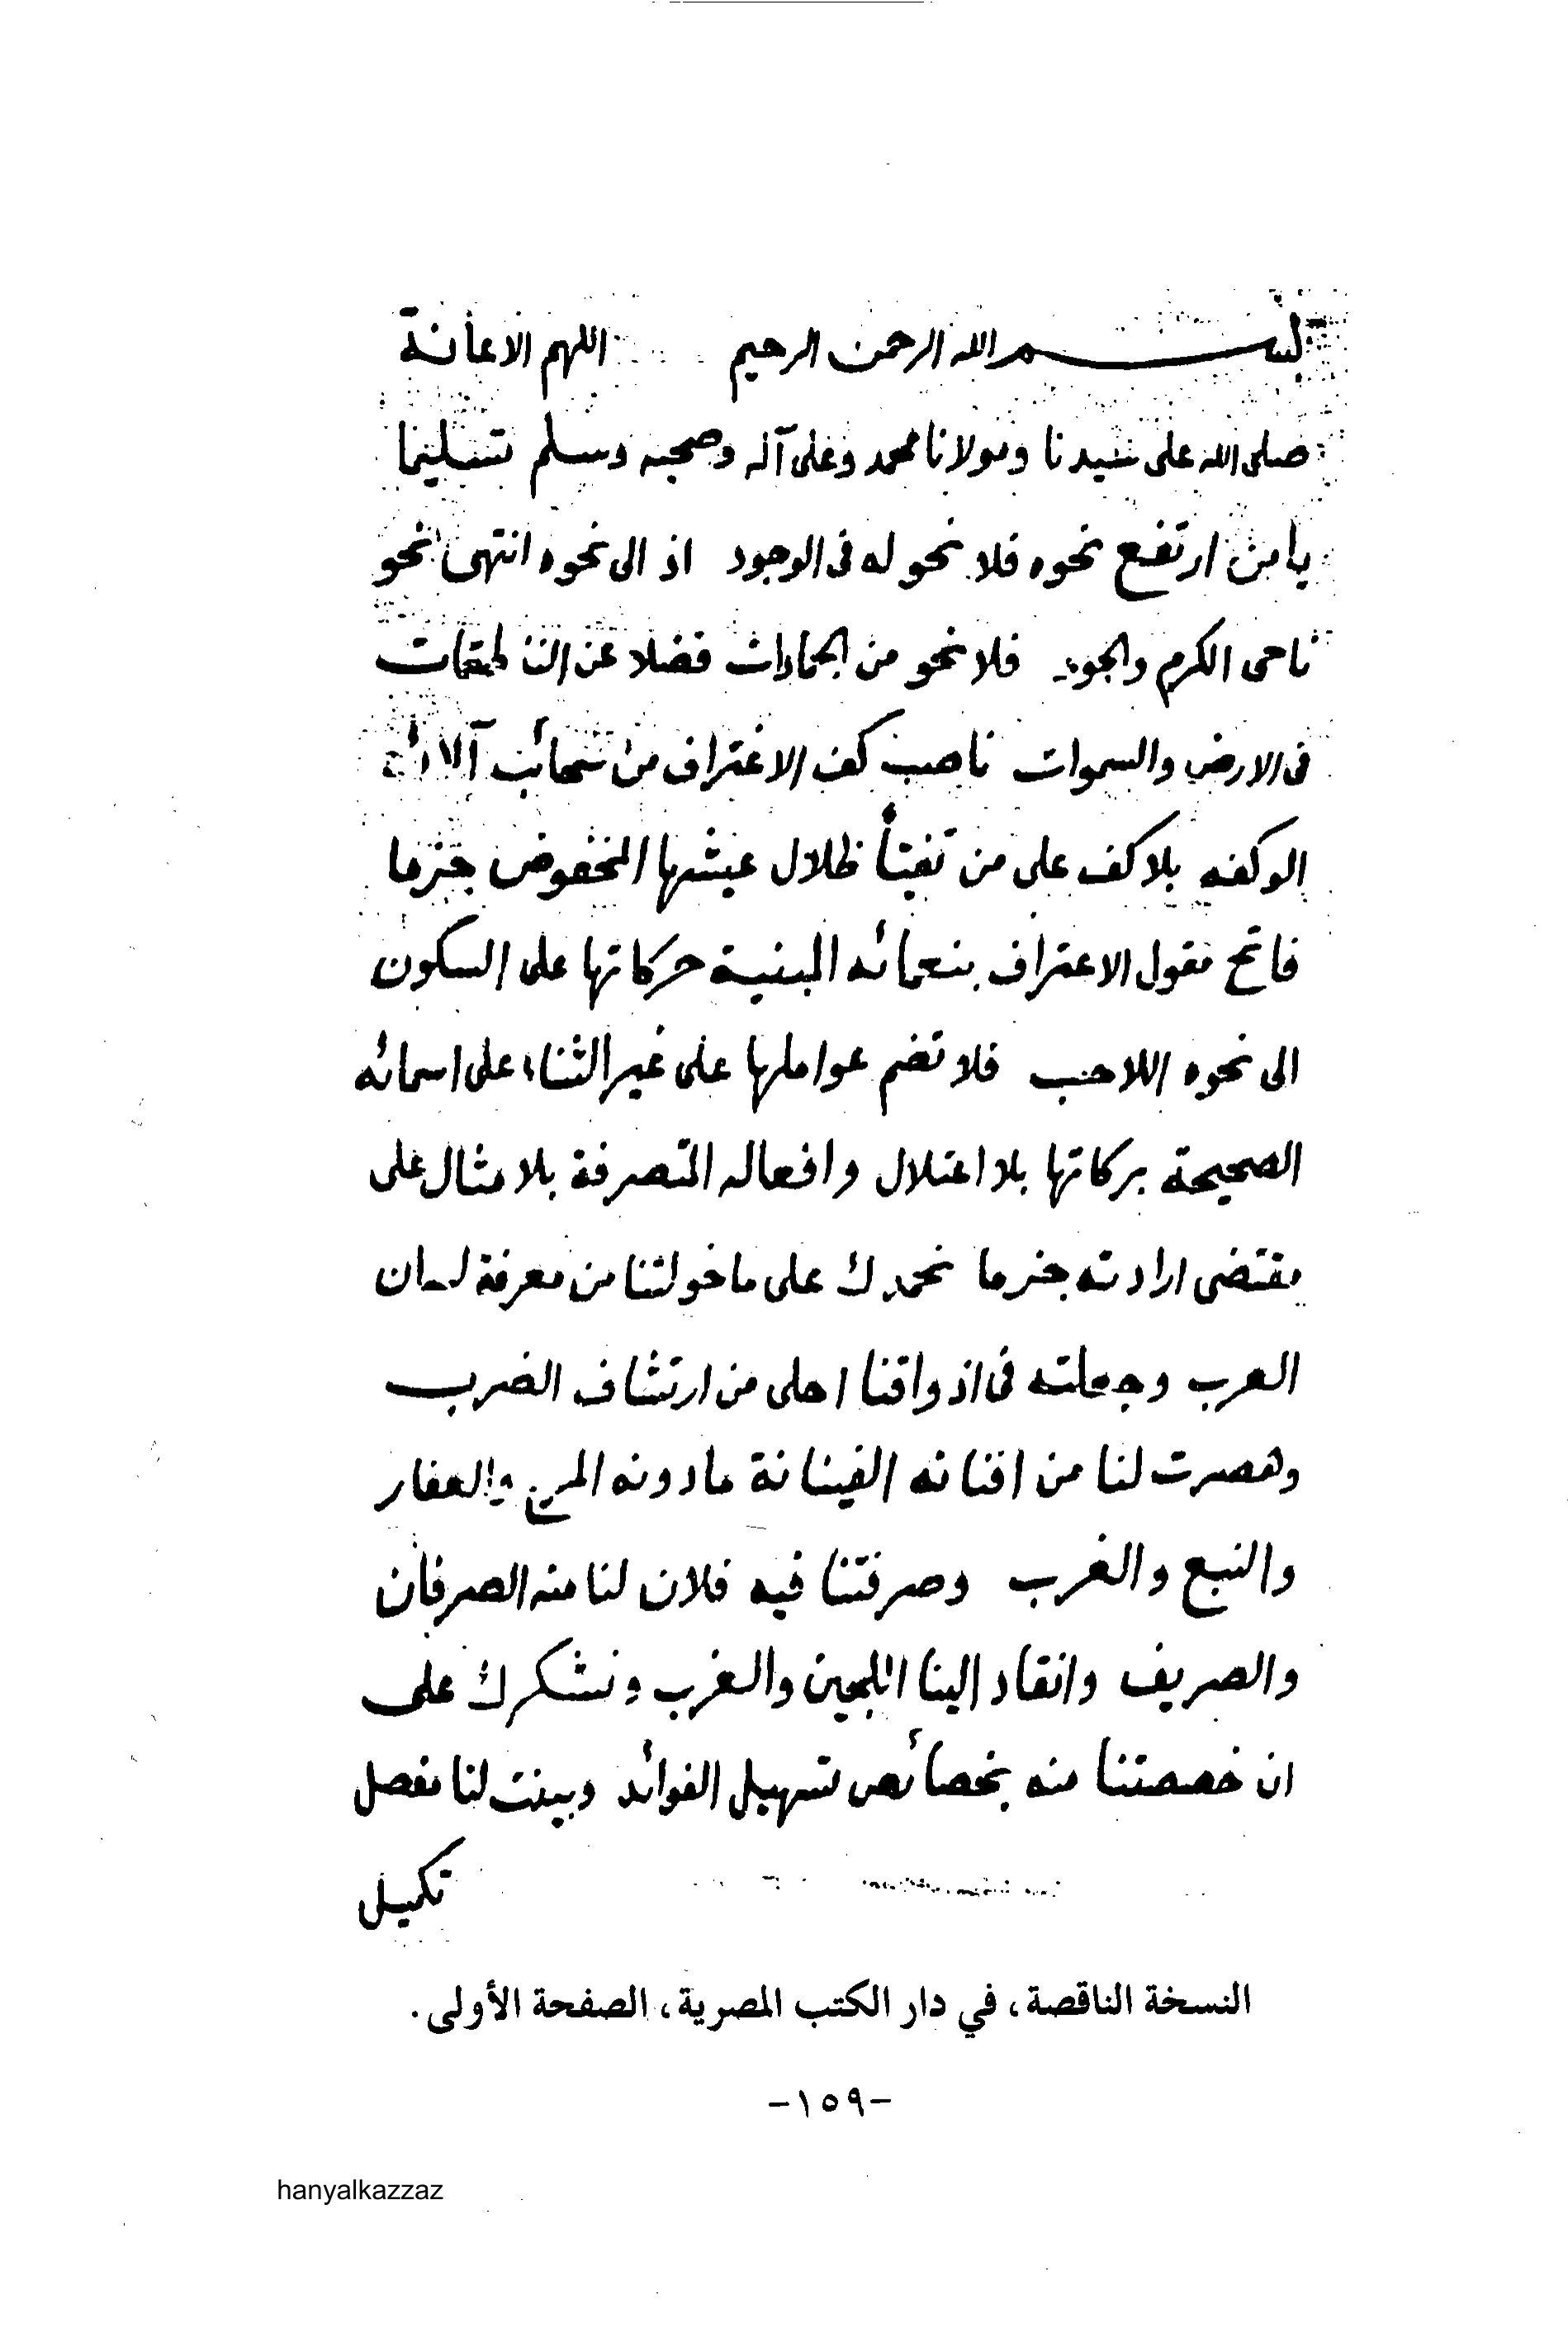 بسم الله الرحمن الرحيم اللهم الاعانة
صلى الله على سيدنا ومولانا محمد وعلى آله وصحبه وسلم تسليما
يا من ارتفع نحوه فلا نحو له فى الوجود اذ الى نحوه انتهى نحو
ناحى الكرم والجود فلا نحو من الجمادات فضلا عن الناطقات
فى الارض والسموات ناصب كف الاغتراف من سحائب آلائه
الوكفه بلا كف على من تفيأ ظلال عيشها المخفوض جزما
فاتح مقول الاعتراف بنعمائه المبنية حركاتها على السكون
الى نحوه اللاحب فلا تضم عواملها على غير الثناء على اسمائه
الصحيحة بركاتها بلا اعتلال وافعاله المتصرفة بلا مثال على
مقتضى ارادته جزما نحمدك على ما خولتنا من معرفة لسان
العرب وجعلته فى اذواقنا احلى من ارتشاف الضرب
وهصرت لنا من افنانه الفينانة مادونه المرخ والعفار
والنبع والغرب وصرفتنا فيه فلان لنا منه الصرفان
والصريف وانقاد الينا اللجين والغرب ونشكرك على
ان خصصتنا منه بخصائص تسهيل الفوائد وبينت لنا مفصل
تكميل
النسخة الناقصة، في دار الكتب المصرية، الصفحة الأولى.
-١٥٩-
hanyalkazzaz